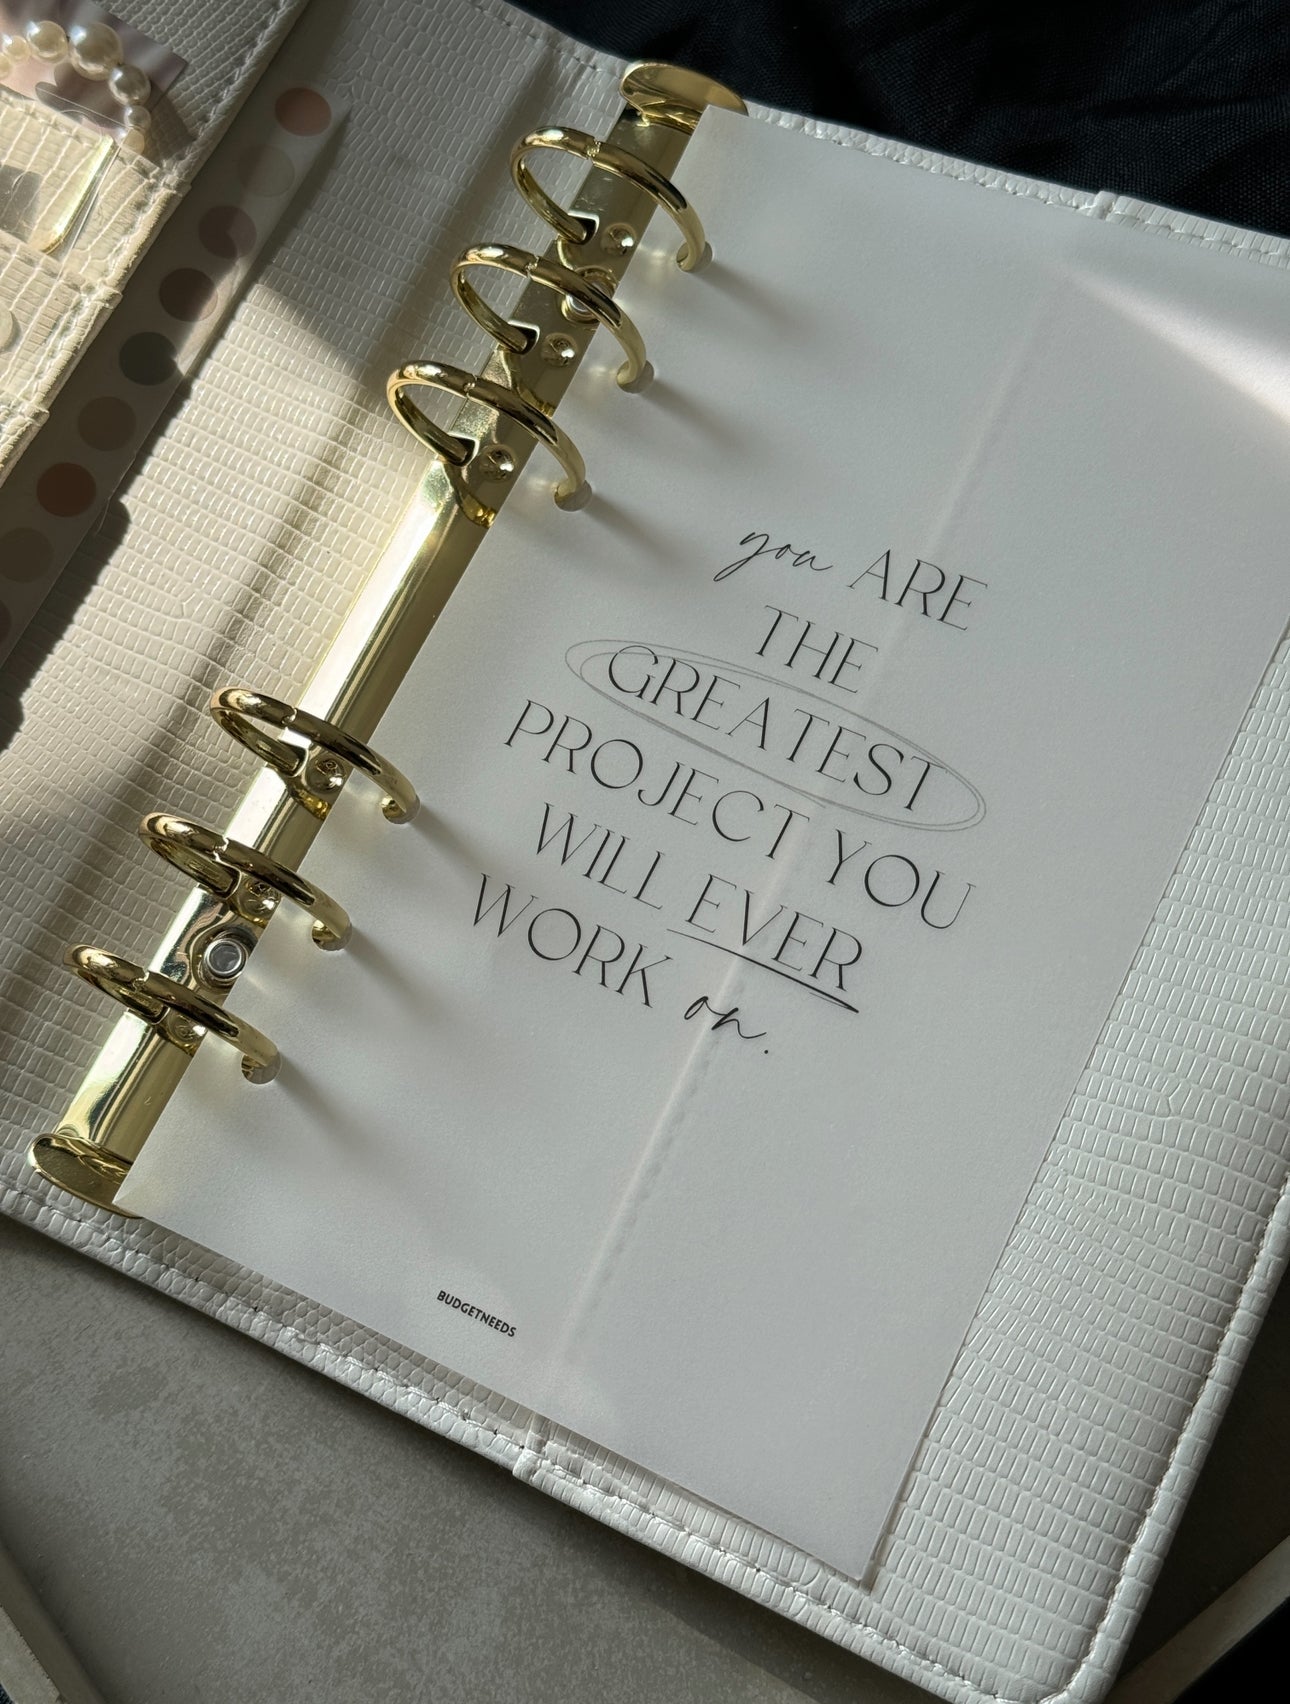 you ARE
THE
GREATEST
PROJECT YOU
WILL EVER
WORK on.
BUDGETNEEDS